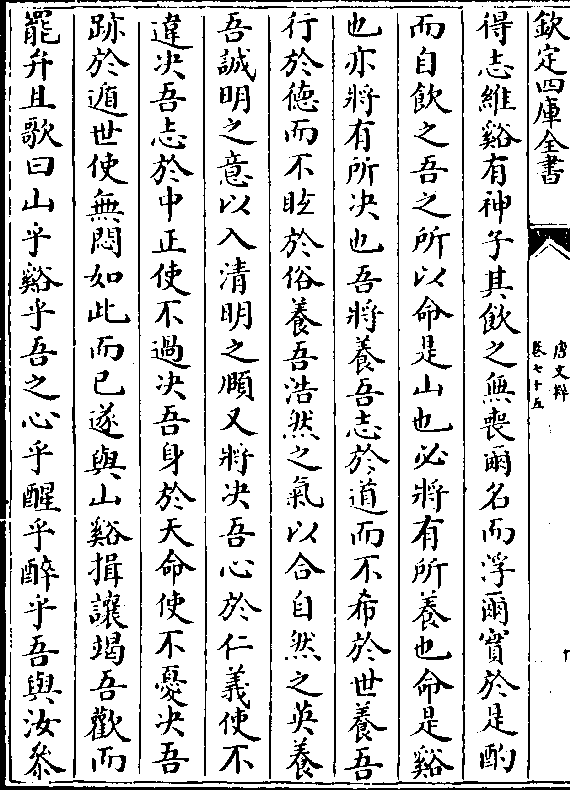 欽定四庫全書
唐文粹
卷七十五
得志維谿有神子其飲之無喪爾名而浮爾實於是酌
而自飲之吾之所以命是山也必將有所養也命是谿
也亦將有所决也吾將養吾志於道而不希於世養吾
行於德而不眩於俗養吾浩然之氣以合自然之英養
吾誠明之意以入清明之頤又將决吾心於仁義使不
違决吾志於中正使不過决吾身於天命使不憂决吾
跡於遁世使無悶如此而已遂與山谿揖讓竭吾歡而
罷弁且歌曰山乎谿乎吾之心乎醒乎醉乎吾與汝叅